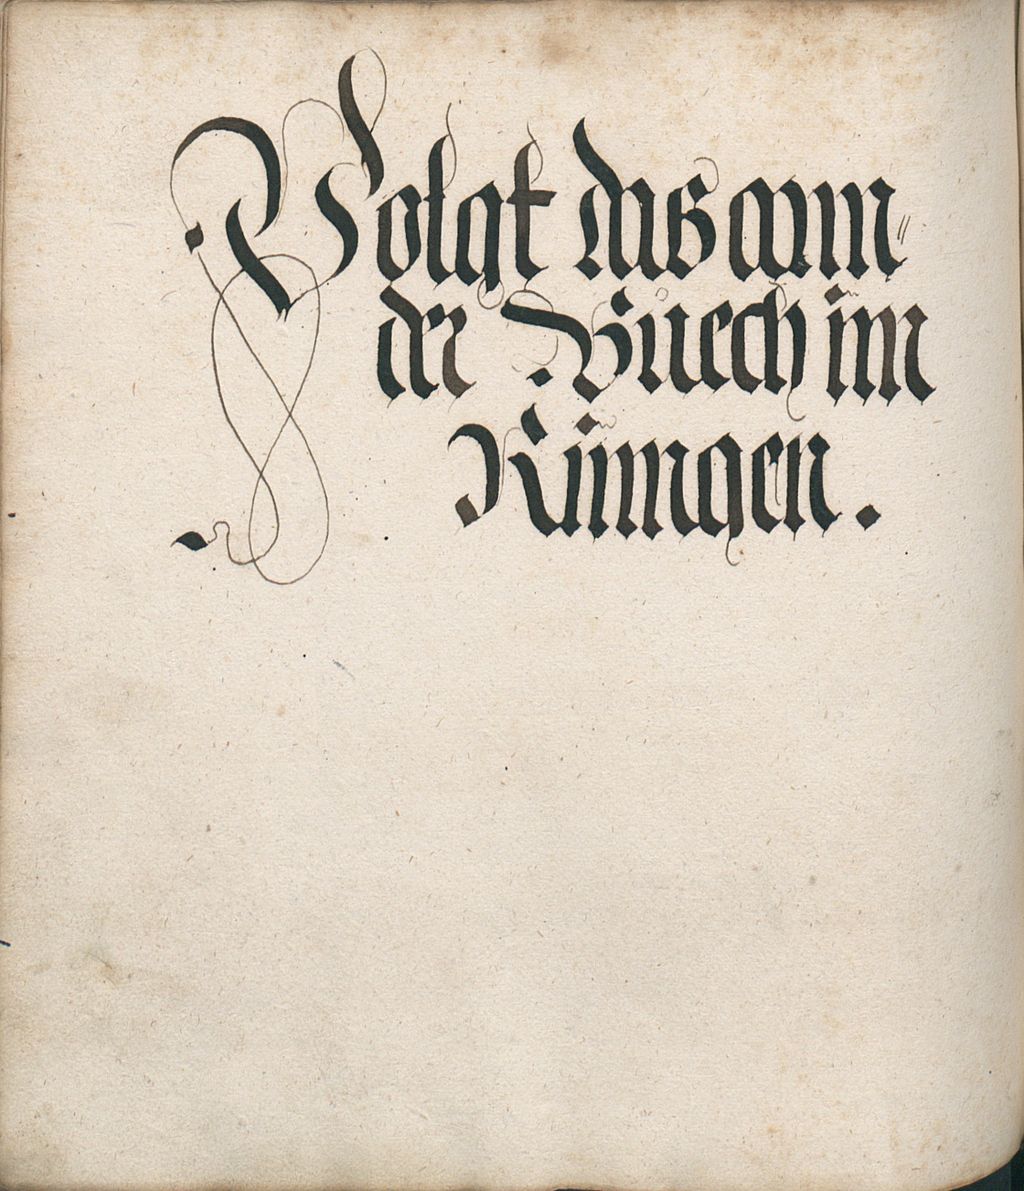 Volgt das ann„
der Buech im
Rinngen.